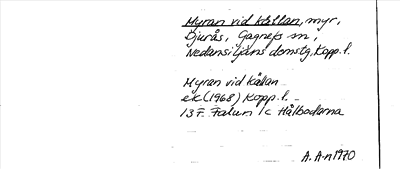 Myran vid källan, myr,
Djurås, Gagnefs sn,
Nedansiljans domstg, Kopp. l.
Myran vid källan
ek (1968) Kopp. l.
13 F Falun 1 c Hålbodarna
A. A-n 1970